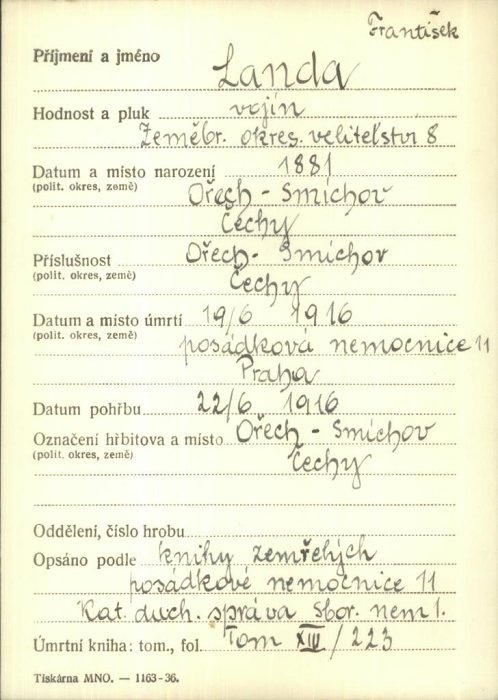 František
Příjmení a jméno Landa
Hodnost a pluk vojín
Zeměbr. okres. velitelství 8
Datum a místo narození 1881
(polit. okres, země) Ořech - Smíchov
Čechy
Příslušnost Ořech - Smíchov
(polit. okres, země) Čechy
Datum a místo úmrtí 19/6 1916
(polit. okres, země) posádková nemocnice 11
Praha
Datum pohřbu 22/6 1916
Označení hřbitova a místo Ořech - Smíchov
(polit. okres, země) Čechy
Oddělení, číslo hrobu
Opsáno podle knihy zemřelých
posádkové nemocnice 11
Kat. duch. správa Sbor. nem 1.
Úmrtní kniha: tom., fol. Tom XIV / 223
Tiskárna MNO. — 1163-36.